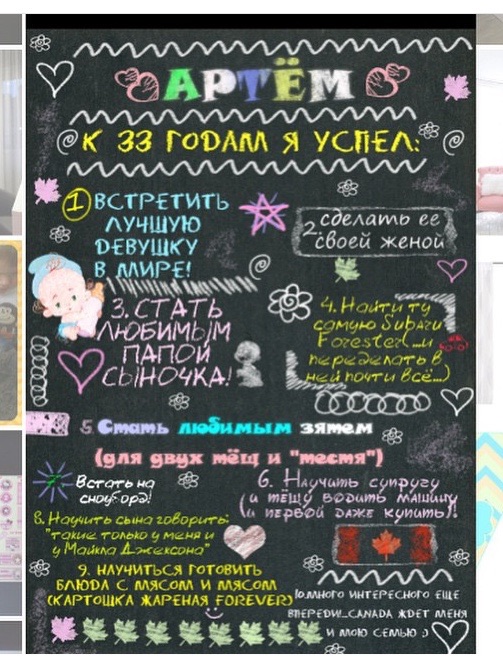 АРТЁМ
К 33 ГОДАМ Я УСПЕЛ:
1 ВСТРЕТИТЬ
ЛУЧШУЮ
ДЕВУШКУ
В МИРЕ!
2. сделать ее
своей женой
3. СТАТЬ
ЛЮБИМЫМ
ПАПОЙ
СЫНОЧКА!
4. Найти ту
самую Subaru
Forester(...и
переделать в
ней почти всё...)
5. Стать любимым зятем
(для двух тёщ и "тестя")
Встать на
сноуборд!
6. Научить супругу
(и тёщу водить машину
(и первой даже купить)!
8. Научить сына говорить:
"такие только у меня и
у Майкла Джексона"
9. НАУЧИТЬСЯ ГОТОВИТЬ
БЛЮДА С МЯСОМ И МЯСОМ
(КАРТОШКА ЖАРЕНАЯ FOREVER)
10.МНОГО ИНТЕРЕСНОГО ЕЩЕ
ВПЕРЕДИ!..CANADA ЖДЕТ МЕНЯ
И МОЮ СЕМЬЮ :)